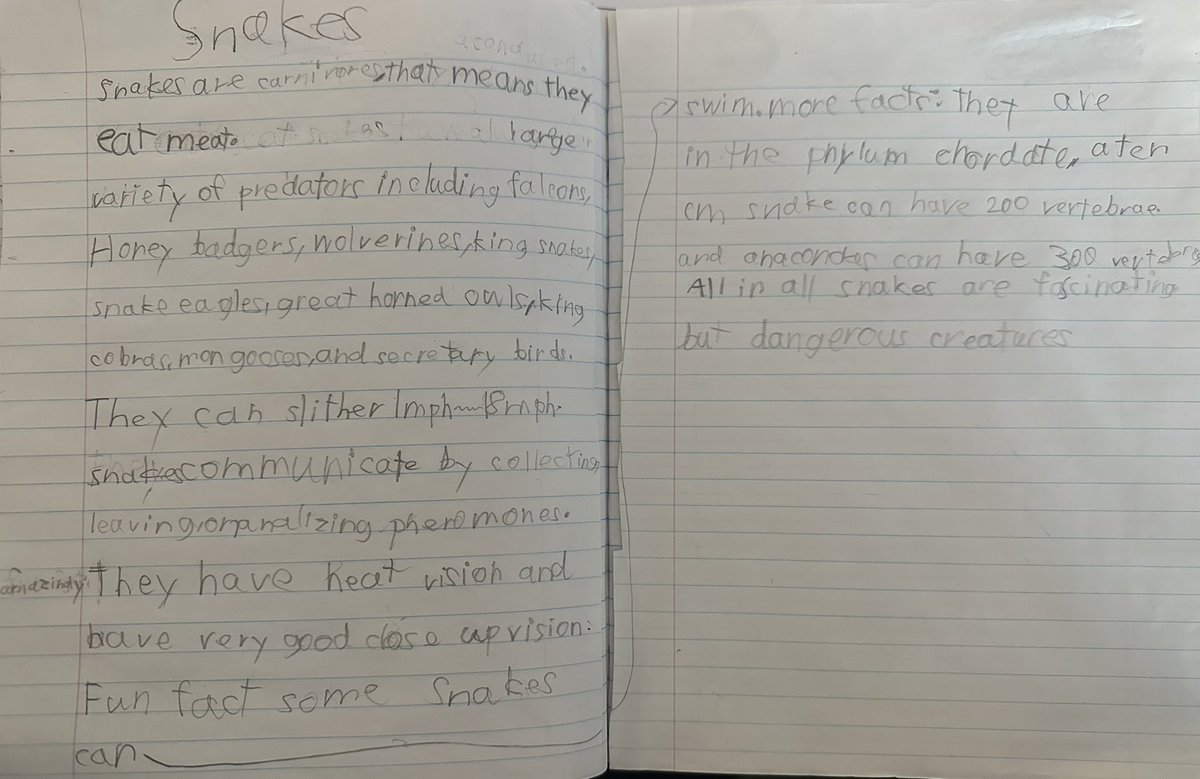 Snakes
snakes are carnivores, that means they
eat meat. large
variety of predators including falcons,
Honey badgers, wolverines, king snakes,
snake eagles, great horned owls, king
cobras, mongooses, and secretary birds.
They can slither 1mph—18mph.
snakes communicate by collecting,
leaving, or analizing pheromones.
amazingly, They have heat vision and
have very good close up vision.
Fun fact some snakes
can
→ swim. more facts: they are
in the phylum chordate, a ten
cm snake can have 200 vertebrae.
and anacondas can have 300
All in all snakes are fascinating
but dangerous creatures